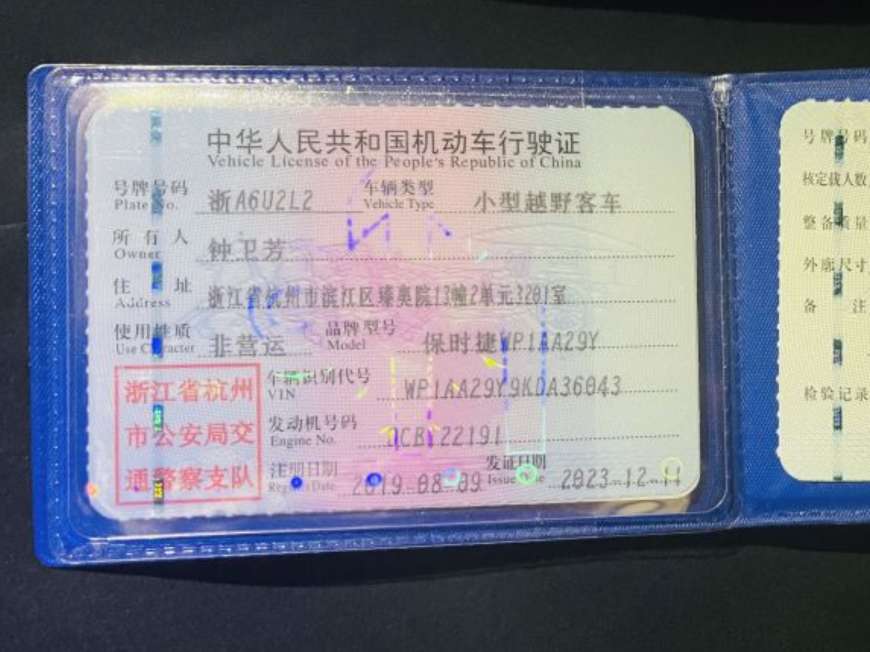 中华人民共和国机动车行驶证
Vehicle License of the People's Republic of China
号牌号码 浙A6U2L2 车辆类型 小型越野客车
Plate No. Vehicle Type
所有人 钟卫芳
Owner
住址 浙江省杭州市滨江区臻奥院13幢2单元3201室
Address
使用性质 非营运 品牌型号 保时捷WP1AA29Y
Use Character Model
车辆识别代号 WP1AA29Y9KDA36043
VIN
发动机号码 DCB122191
Engine No.
注册日期 2019-08-09 发证日期 2023-12-11
Register Date Issue Date
浙江省杭州
市公安局交
通警察支队
号牌号码
核定载人数
整备质量
外廓尺寸
备注
检验记录